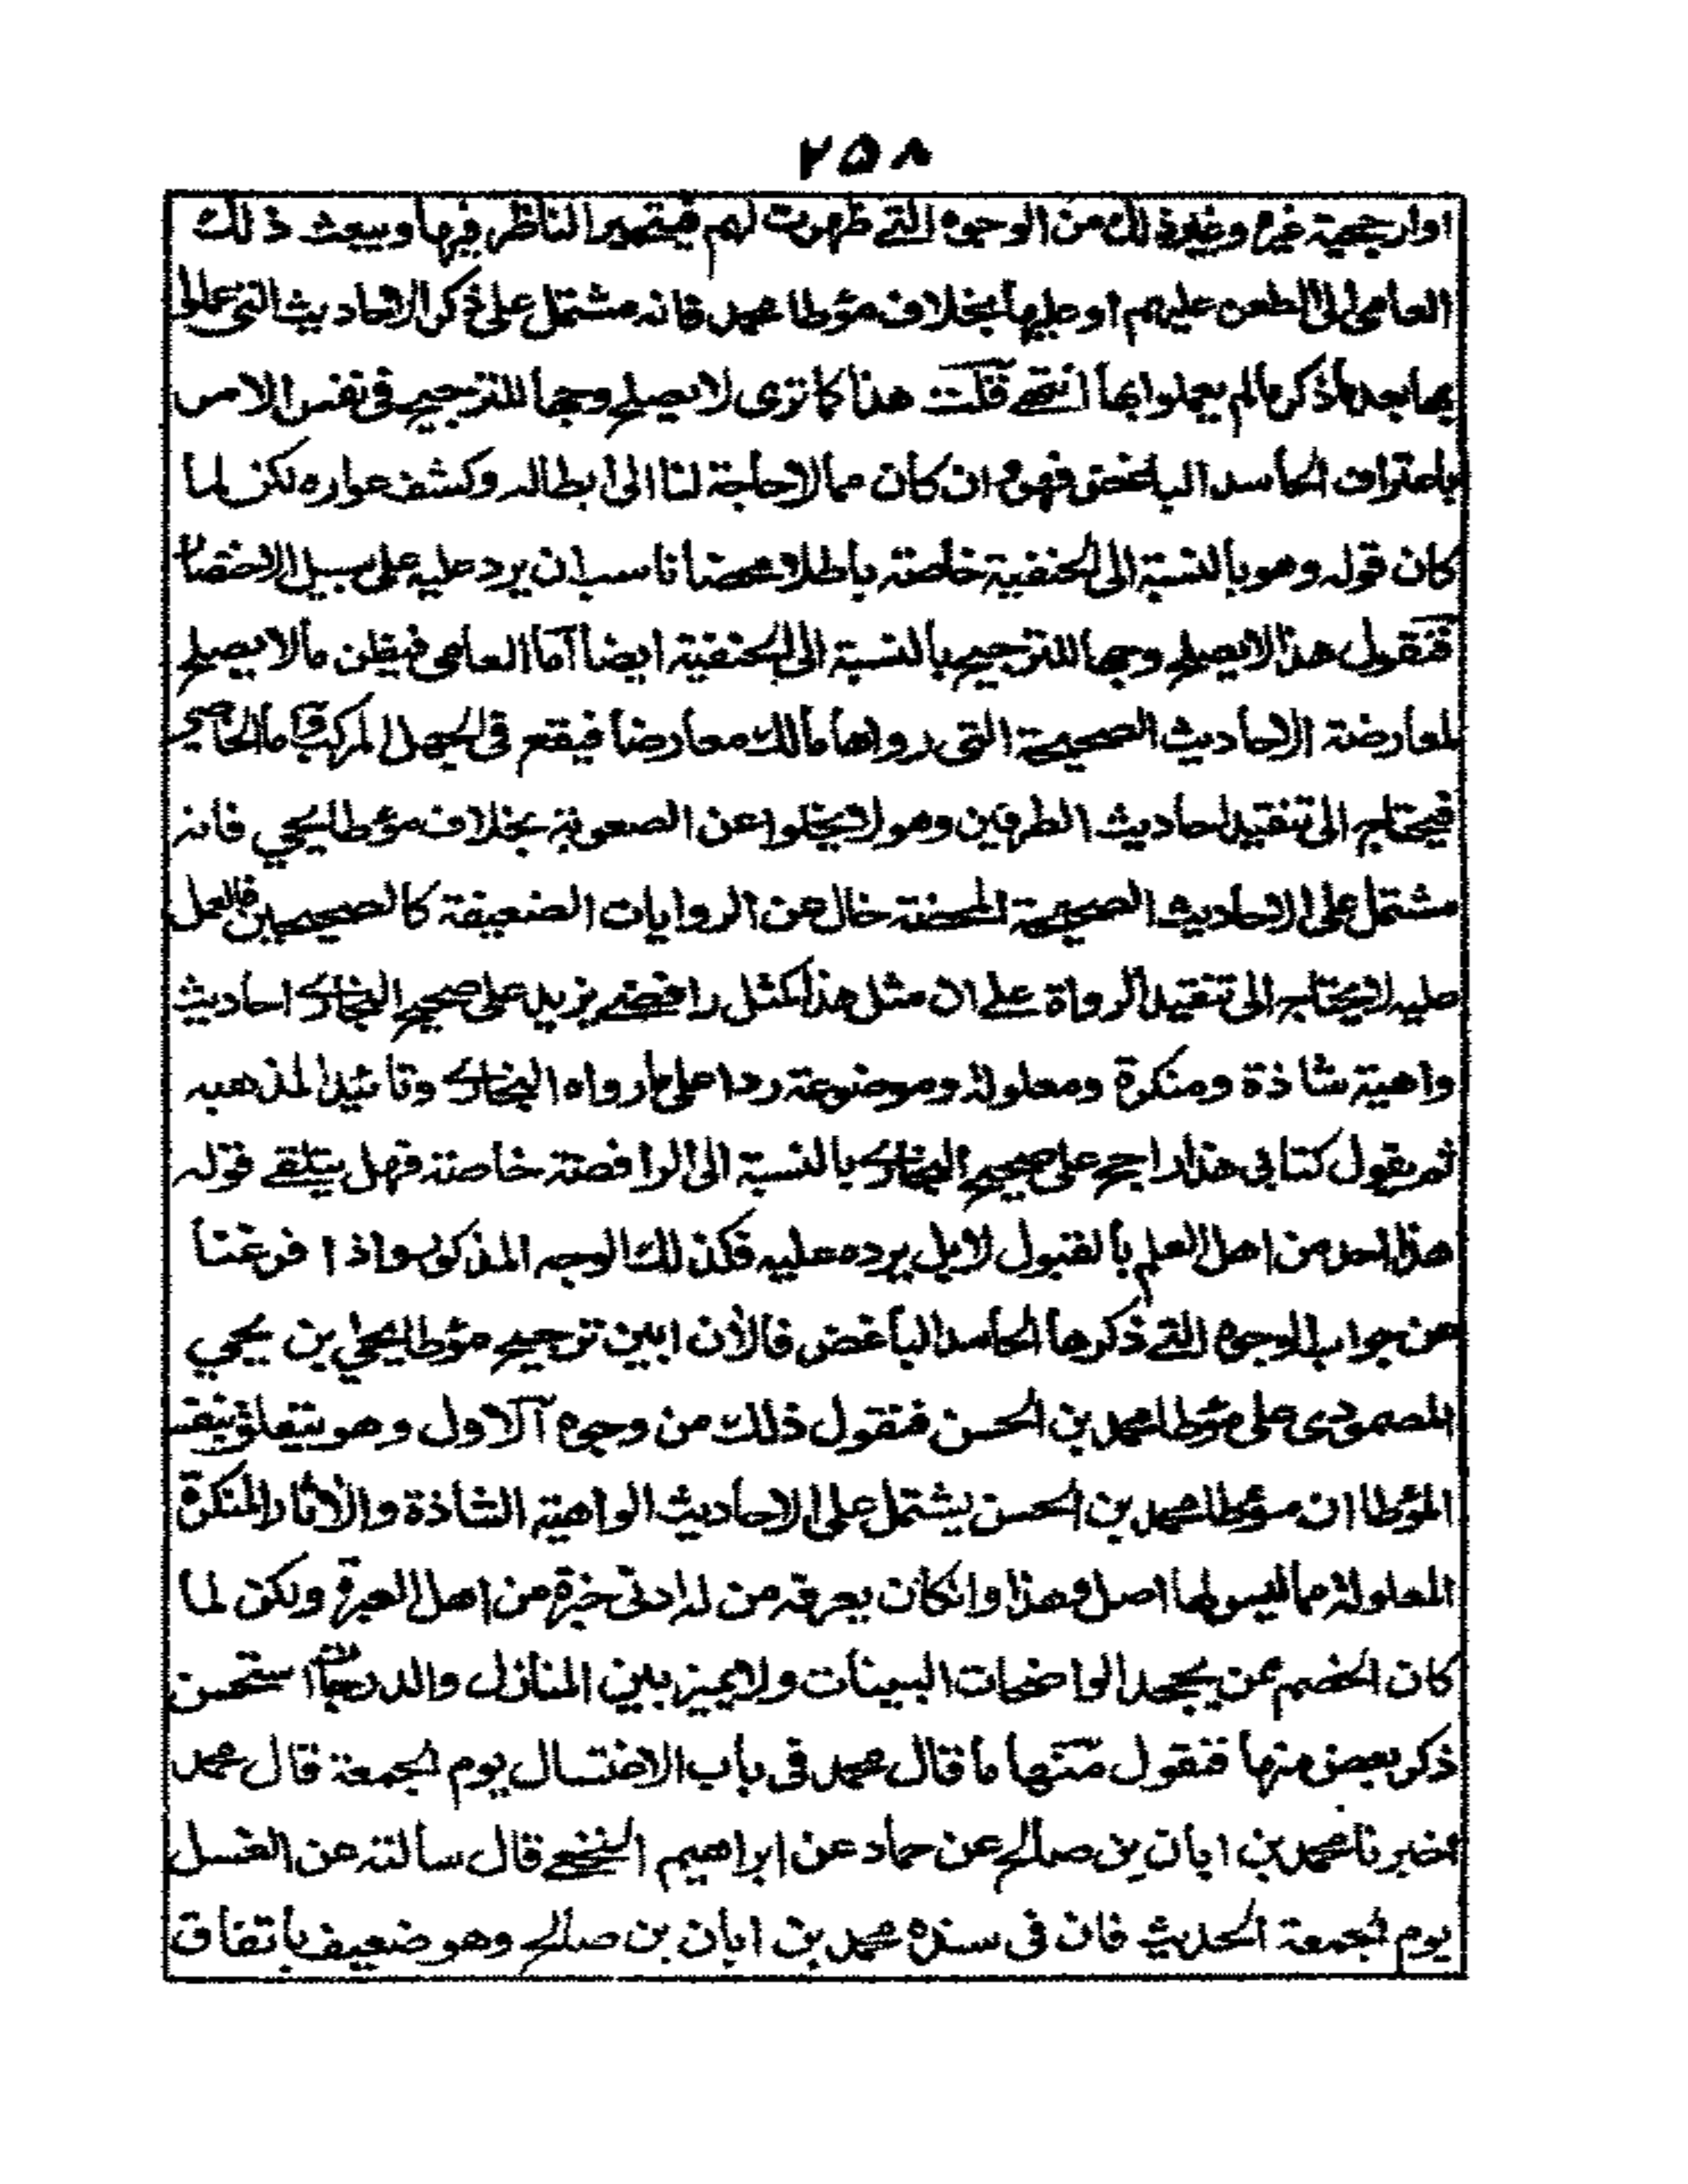 ٢٥٨
اوارجحية غيره وغير ذلك من الوجوه التي ظهرت لهم فيتحير الناظر فيها ويبعث ذلك
العامى الى الطعن عليهم او عليها بخلاف مؤطا محمد فانه مشتمل على ذكر الاحاديث التى عملوا
بها بعد ما ذكر مالم يعملوا بها انتهى قلت هذا كما ترى لا يصلح وجها للترجيح فى نفس الامر
باعتراف الحاسد الباغض فهو ان كان مما لاحاجة لنا الى ابطاله وكشف عواره لكن لما
كان قوله وهو بالنسبة الى الحنفية خاصة باطلا محضا ناسب ان يرد عليه على سبيل الاختصار
فنقول هذا لا يصلح وجها للترجيح بالنسبة الى الحنفية ايضا اما العامى فيظن مالا يصلح
لمعارضة الاحاديث الصحيحة التى رواها مالك معارضا فيقع فى الجهل المركب واما الخاصي
فيحتاج الى تنقيد احاديث الطرفين وهو لا يخلوا عن الصعوبة بخلاف مؤطا يحيى فانه
مشتمل على الاحاديث الصحيحة المحضة خال عن الروايات الضعيفة كالصحيحين فالعمل
عليه لا يحتاج الى تنقيد الرواة على ان مثل هذا كمثل رافضى يزيد على صحيح البخارى احاديث
واهية شاذة ومنكرة ومعلولة وموضوعة ردا على ما رواه البخارى وتائيدا لمذهبه
ثم يقول كتابى هذا راجح على صحيح البخارى بالنسبة الى الرافضة خاصة فهل يتلقى قوله
هذا احد من اهل العلم بالقبول لا بل يرده عليه فكذلك الوجه المذكور واذا فرغنا
عن جواب الوجوه التى ذكرها الحاسد الباغض فالأن ابين ترجيح مؤطا يحيى بن يحيى
المصمودى على مؤطا محمد بن الحسن فنقول ذلك من وجوه الاول وهو يتعلق بنفس
المؤطا ان مؤطا محمد بن الحسن يشتمل على الاحاديث الواهية الشاذة والأثار المنكرة
المعلولة مما ليس لها اصل وهذا وانكان يعرفه من له ادنى خبرة من اهل العبرة ولكن لما
كان الخصم ممن يجحد الواضحات البينات ولا يميز بين المنازل والدرجات استحسن
ذكر بعض منها فنقول منها ما قال محمد فى باب الاغتسال يوم الجمعة قال محمد
اخبرنا محمد بن ابان بن صالح عن حماد عن ابراهيم النخعى قال سألته عن الغسل
يوم الجمعة الحديث فان فى سنده محمد بن ابان بن صالح وهو ضعيف باتفاق